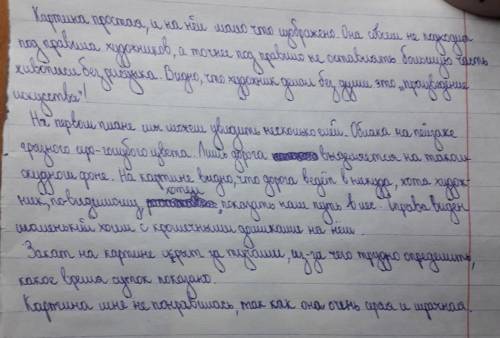 Картина простая, и на нём мало что изображено. Она совсем не подходит
под правила художников, а точнее под правило не оставлять большую часть
живописи без рисунка. Видно, что художник делал без души это „произведение
искусства"!
На первом плане мы можем увидеть несколько елей. Облака на пейзаже
грязного серо-голубого цвета. Лишь дорога выделяется на таком
скудном фоне. На картине видно, что дорога ведёт в никуда, хотя худож-
хотел
ник, по-видимому, показать нам путь в лес. Справа виден
маленький холм с крошечными домиками на нём.
Закат на картине укрыт за тучами, из-за чего трудно определить,
какое время суток показано.
Картина мне не понравилась, так как она очень серая и мрачная.